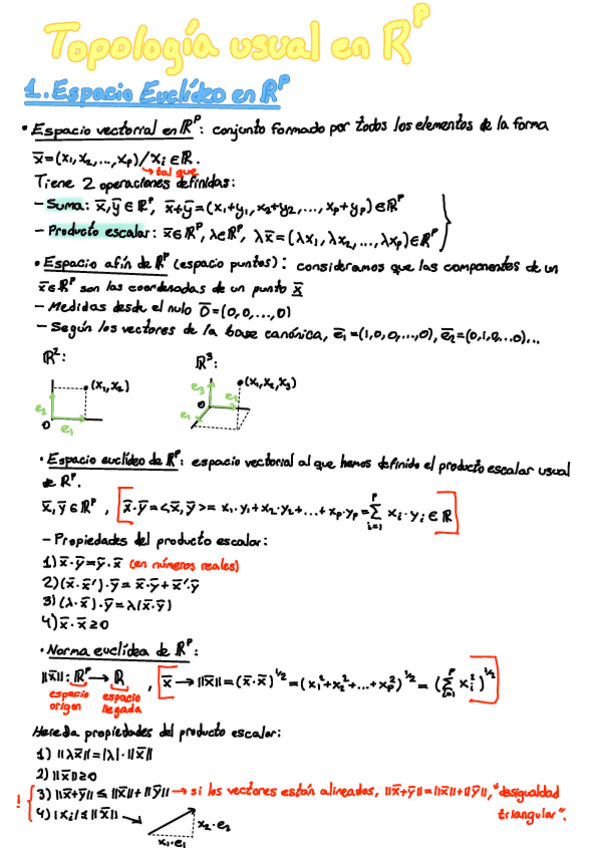 Topología usual en R^p
1. Espacio Euclídeo en R^p
• Espacio vectorial en R^p: conjunto formado por todos los elementos de la forma
x̄=(x₁,x₂,...,xₚ)/xᵢ∈R.
→ tal que
Tiene 2 operaciones definidas:
- Suma: x̄,ȳ∈R^p, x̄+ȳ=(x₁+y₁,x₂+y₂,...,xₚ+yₚ)∈R^p
- Producto escalar: x̄∈R^p, λ∈R^p, λx̄=(λx₁,λx₂,...,λxₚ)∈R^p
• Espacio afín de R^p (espacio puntos): consideramos que las componentes de un
x̄∈R^p son las coordenadas de un punto x̄
- Medidas desde el nulo 0̄=(0,0,...,0)
- Según los vectores de la base canónica, ē₁=(1,0,0,...,0), ē₂=(0,1,0,..0)...
R²: R³:
(x₁,x₂) e₂ 0 e₁
(x₁,x₂,x₃) e₃ 0 e₂ e₁
• Espacio euclídeo de R^p: espacio vectorial al que hemos definido el producto escalar usual
de R^p.
x̄,ȳ∈R^p, [x̄·ȳ=<x̄,ȳ>= x₁·y₁+x₂·y₂+...+xₚ·yₚ=∑ᵢ₌₁^p xᵢ·yᵢ∈R]
- Propiedades del producto escalar:
1) x̄·ȳ=ȳ·x̄ (en números reales)
2) (x̄·x̄')·ȳ= x̄·ȳ+x̄'·ȳ
3) (λ·x̄)·ȳ=λ(x̄·ȳ)
4) x̄·x̄≥0
• Norma euclídea de R^p:
||x̄||: R^p→R, [x̄→||x̄||=(x̄·x̄)^1/2=(x₁²+x₂²+...+xₚ²)^1/2=(∑ᵢ₌₁^p xᵢ²)^1/2]
espacio origen espacio llegada
Hereda propiedades del producto escalar:
1) ||λx̄||=|λ|·||x̄||
2) ||x̄||≥0
! 3) ||x̄+ȳ||≤||x̄||+||ȳ|| → si los vectores están alineados, ||x̄+ȳ||=||x̄||+||ȳ||, "desigualdad
triangular".
4) |xᵢ|≤||x̄|| →
x₂·e₂
x₁·e₁